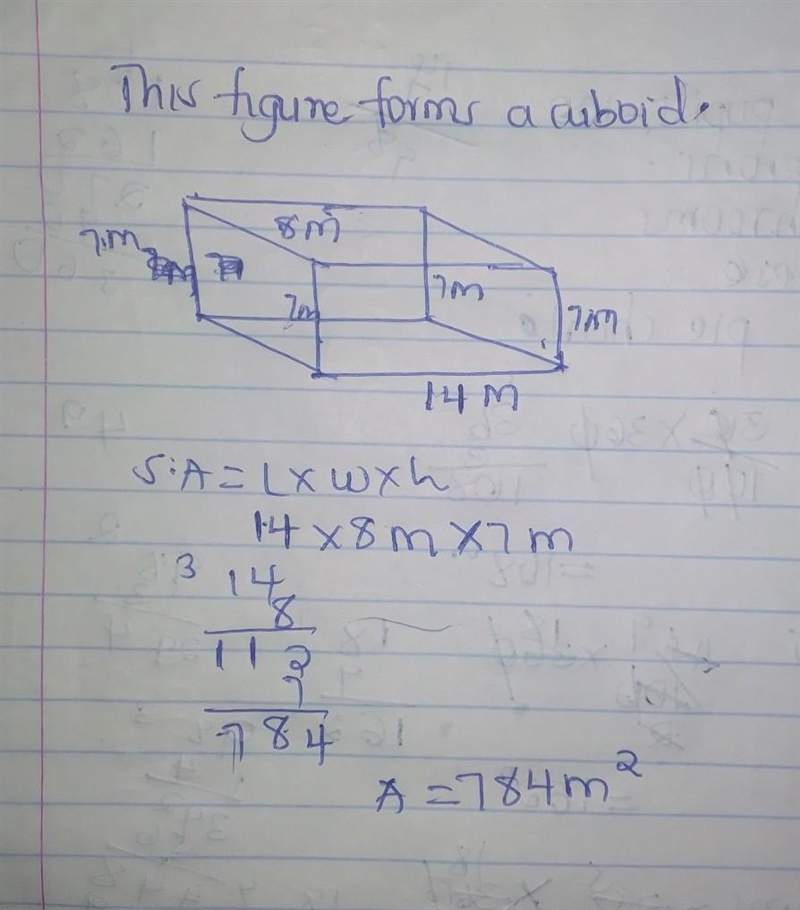 This figure forms a cuboid.
8m
7.m
7m
7m
7m
14 m
S.A = L x w x h
14 x 8 m x 7 m
3 14
8
112
7
784
A = 784m²